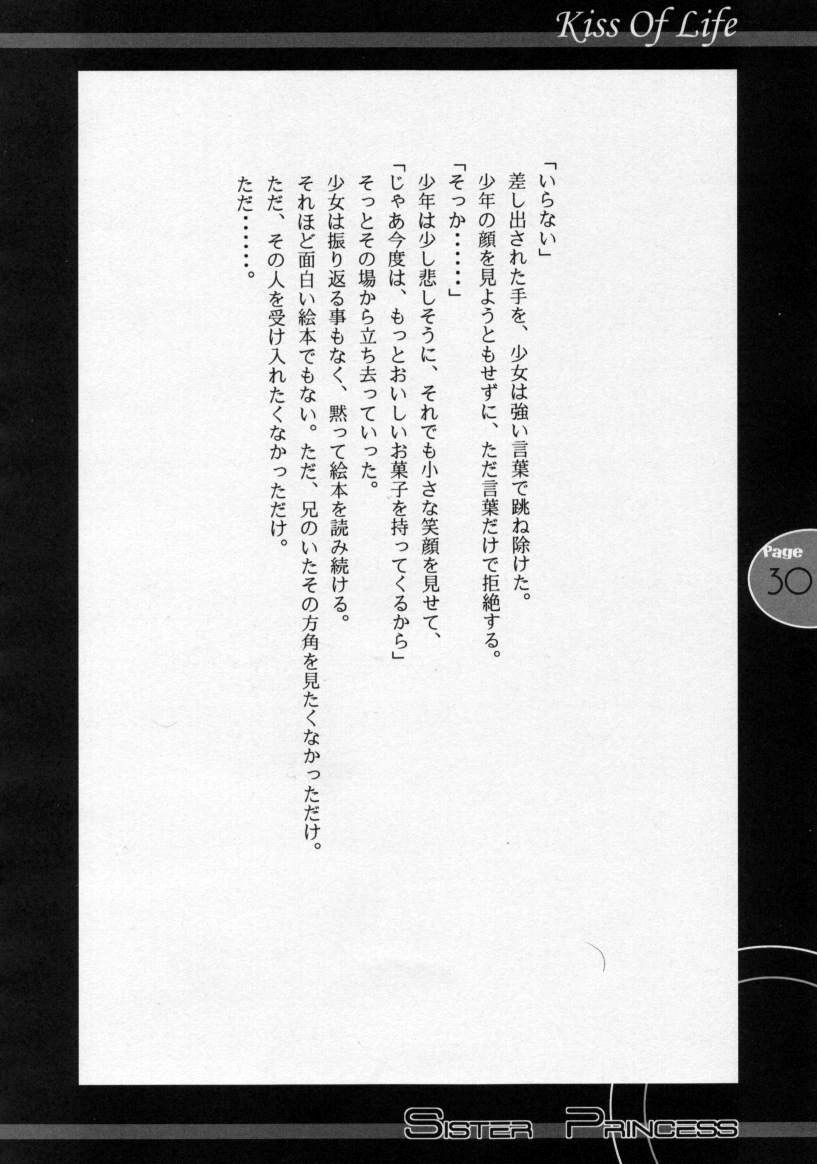 Kiss Of Life
「いらない」
差し出された手を、少女は強い言葉で跳ね除けた。
少年の顔を見ようともせずに、ただ言葉だけで拒絶する。
「そっか・・・・・」
少年は少し悲しそうに、それでも小さな笑顔を見せて、
「じゃあ今度は、もっとおいしいお菓子を持ってくるから」
そっとその場から立ち去っていった。
少女は振り返る事もなく、黙って絵本を読み続ける。
それほど面白い絵本でもない。ただ、兄のいたその方角を見たくなかっただけ。
ただ、その人を受け入れたくなかっただけ。
ただ・・・・・・。
Page
30
SISTER PRINCESS